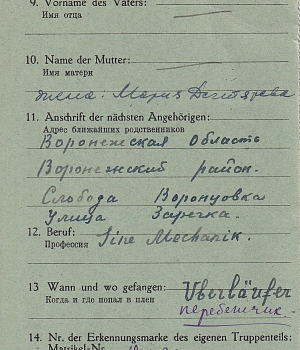 9. Vorname des Vaters:
Имя отца
10. Name der Mutter:
Имя матери
жена: Мария Дегтярева
11. Anschrift der nächsten Angehörigen:
Адрес ближайших родственников
Воронежская область
Воронежский район.
Слобода Воронцовка
Улица Заречка.
12. Beruf: Mechanik.
Профессия
13 Wann und wo gefangen: Überläufer
Когда и где попал в плен перебежчик.
14. Nr. der Erkennungsmarke des eigenen Truppenteils: